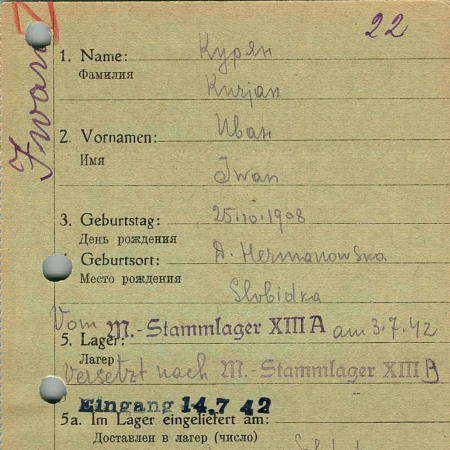 22
Iwan
1. Name: Курян
Фамилия
Kurjan
2. Vornamen: Иван
Имя
Iwan
3. Geburtstag: 25.10.1908
День рождения
Geburtsort: D. Hermanowska
Место рождения
Slobidka
Vom M.-Stammlager XIII A am 3.7.42
5. Lager:
Лагер
Versetzt nach M.-Stammlager XIII B
Eingang 14.7 42
5a. Im Lager eingeliefert am:
Доставлен в лагер (число)